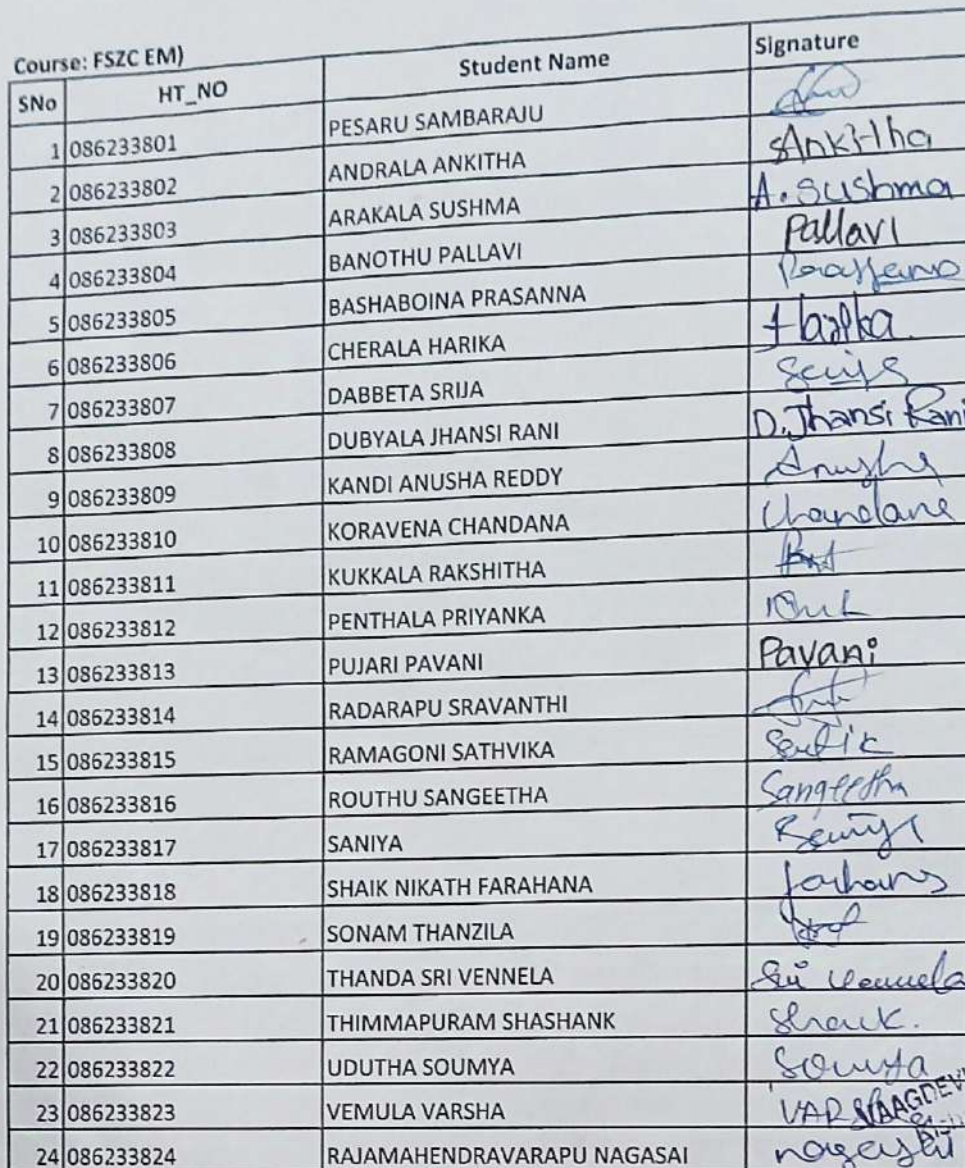 Course: FSZC EM)
SNo HT_NO Student Name Signature
1 086233801 PESARU SAMBARAJU
2 086233802 ANDRALA ANKITHA Ankitha
3 086233803 ARAKALA SUSHMA A. Sushma
4 086233804 BANOTHU PALLAVI Pallavi
5 086233805 BASHABOINA PRASANNA
6 086233806 CHERALA HARIKA Harika
7 086233807 DABBETA SRIJA
8 086233808 DUBYALA JHANSI RANI D. Jhansi Rani
9 086233809 KANDI ANUSHA REDDY Anusha
10 086233810 KORAVENA CHANDANA Chandana
11 086233811 KUKKALA RAKSHITHA
12 086233812 PENTHALA PRIYANKA
13 086233813 PUJARI PAVANI Pavani
14 086233814 RADARAPU SRAVANTHI
15 086233815 RAMAGONI SATHVIKA
16 086233816 ROUTHU SANGEETHA Sangeetha
17 086233817 SANIYA
18 086233818 SHAIK NIKATH FARAHANA
19 086233819 SONAM THANZILA
20 086233820 THANDA SRI VENNELA Sri Vennela
21 086233821 THIMMAPURAM SHASHANK
22 086233822 UDUTHA SOUMYA Soumya
23 086233823 VEMULA VARSHA
24 086233824 RAJAMAHENDRAVARAPU NAGASAI